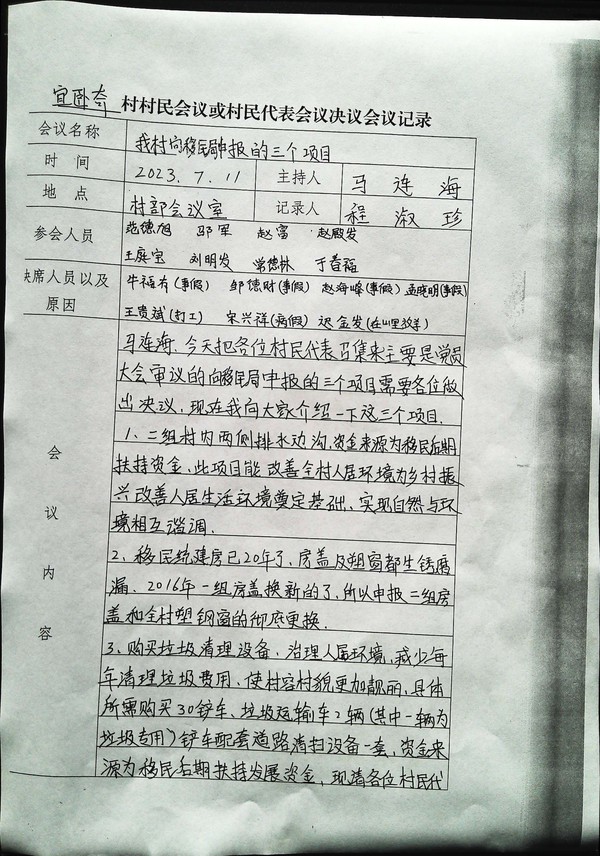 宜卧奇 村村民会议或村民代表会议决议会议记录
会议名称 我村向移民局申报的三个项目
时 间 2023.7.11 主持人 马连海
地 点 村部会议室 记录人 程淑珍
参会人员 范德旭 邹军 赵富 赵殿发
王庭宝 刘明发 常德林 于春福
缺席人员以及 牛福有(事假) 邹德财(事假) 赵海峰(事假) 孟晓明(事假)
原因 王贵斌(打工) 宋兴祥(病假) 迟金发(在山里放羊)
会议内容
马连海.今天把各位村民代表召集来主要是党员
大会审议的向移民局申报的三个项目需要各位做
出决议,现在我向大家介绍一下这三个项目.
1、二组村内两侧排水边沟,资金来源为移民后期
扶持资金,此项目能改善全村人居环境为乡村振
兴改善人居生活环境奠定基础、实现自然与环
境相互谐调.
2、移民统建房已20年了,房盖及塑窗都生锈腐
漏、2016年一组房盖换新的了,所以申报二组房
盖和全村塑钢窗的彻底更换.
3、购买垃圾清理设备、治理人居环境,减少每
年清理垃圾费用、使村容村貌更加靓丽,具体
所需购买30铲车、垃圾运输车2辆(其中一辆为
垃圾专用)铲车配套道路清扫设备一套,资金来
源为移民后期扶持发展资金,现请各位村民代